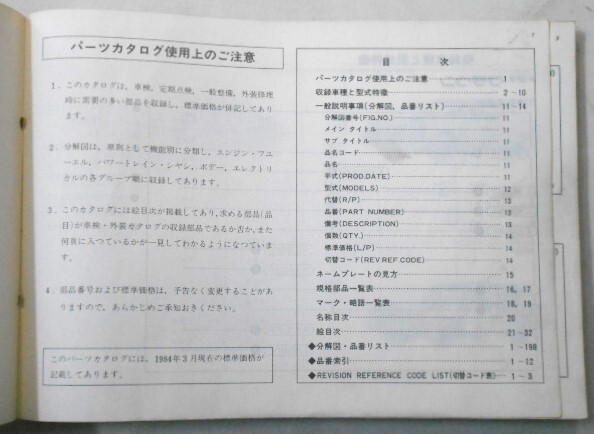 パーツカタログ使用上のご注意
1. このカタログは、車検、定期点検、一般整備、外装修理
時に需要の多い部品を収録し、標準価格が併記してあり
ます。
2. 分解図は、原則として機能別に分類し、エンジン・フュ
ーエル、パワートレイン・シャシ、ボデー、エレクトリ
カルの各グループ順に収録してあります。
3. このカタログには絵目次が掲載してあり、求める部品(品
目)が車検・外装カタログの収録部品であるか否か、また
何頁に入つているかが一見してわかるようになつていま
す。
4. 部品番号および標準価格は、予告なく変更することがあ
りますので、あらかじめご承知おきください。
このパーツカタログには、1984年3月現在の標準価格が
記載してあります。
目 次
パーツカタログ使用上のご注意 1
収録車種と型式特徴 2~10
一般説明事項(分解図、品番リスト) 11~14
分解図番号(FIG.NO.) 11
メイン タイトル 11
サブ タイトル 11
品名コード 11
品名 11
年式(PROD.DATE) 11
型式(MODELS) 12
代替(R/P) 13
品番(PART NUMBER) 13
備考(DESCRIPTION) 13
個数(QTY.) 14
標準価格(L/P) 14
切替コード(REV.REF.CODE) 14
ネームプレートの見方 15
規格部品一覧表 16、17
マーク・略語一覧表 18、19
名称目次 20
絵目次 21~32
◆分解図・品番リスト 1~198
◆品番索引 1~12
◆REVISION REFERENCE CODE LIST(切替コード表) 1~3